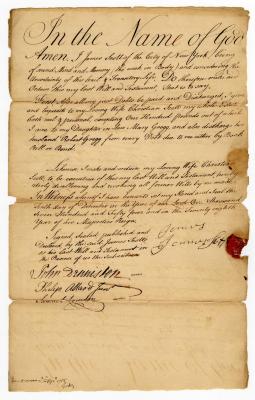 In the Name of God
Amen, I James Scott of the City of New York, being
of sound Mind and Memory (tho weak in Body) and considering the
Uncertainty of this frail & Transitory Life, Do therefore make and
Ordain this my last Will and Testament, that is to say,
First after all my just Debts be paid and Discharged, I give
and bequeath to my loving Wife Christian Scott my whole Estate
both real & personal, excepting One Hundred pounds out of which
I owe to my Daughter in Law Mary Gregg, and also discharge her
husband Robert Gregg from every Debt due to me either by Book
Bill or Bond.
Likewise I make and ordain my loving Wife Christian
Scott, to be executrix of this my last Will and Testament hereby
utterly disallowing and revoking all former Wills by me made
In Witness whereof I have hereunto set my Hand and Seal the
day of December in the Year of our Lord One Thousand
Seven Hundred and Fifty four and in the Twenty eighth
Year of his Majesties Reign.
Signed Sealed published and
Declared by the said James Scott
as his last Will and Testament in
the Presence of us the Subscribers
James Scott
John Denniston
Philip
Samuel